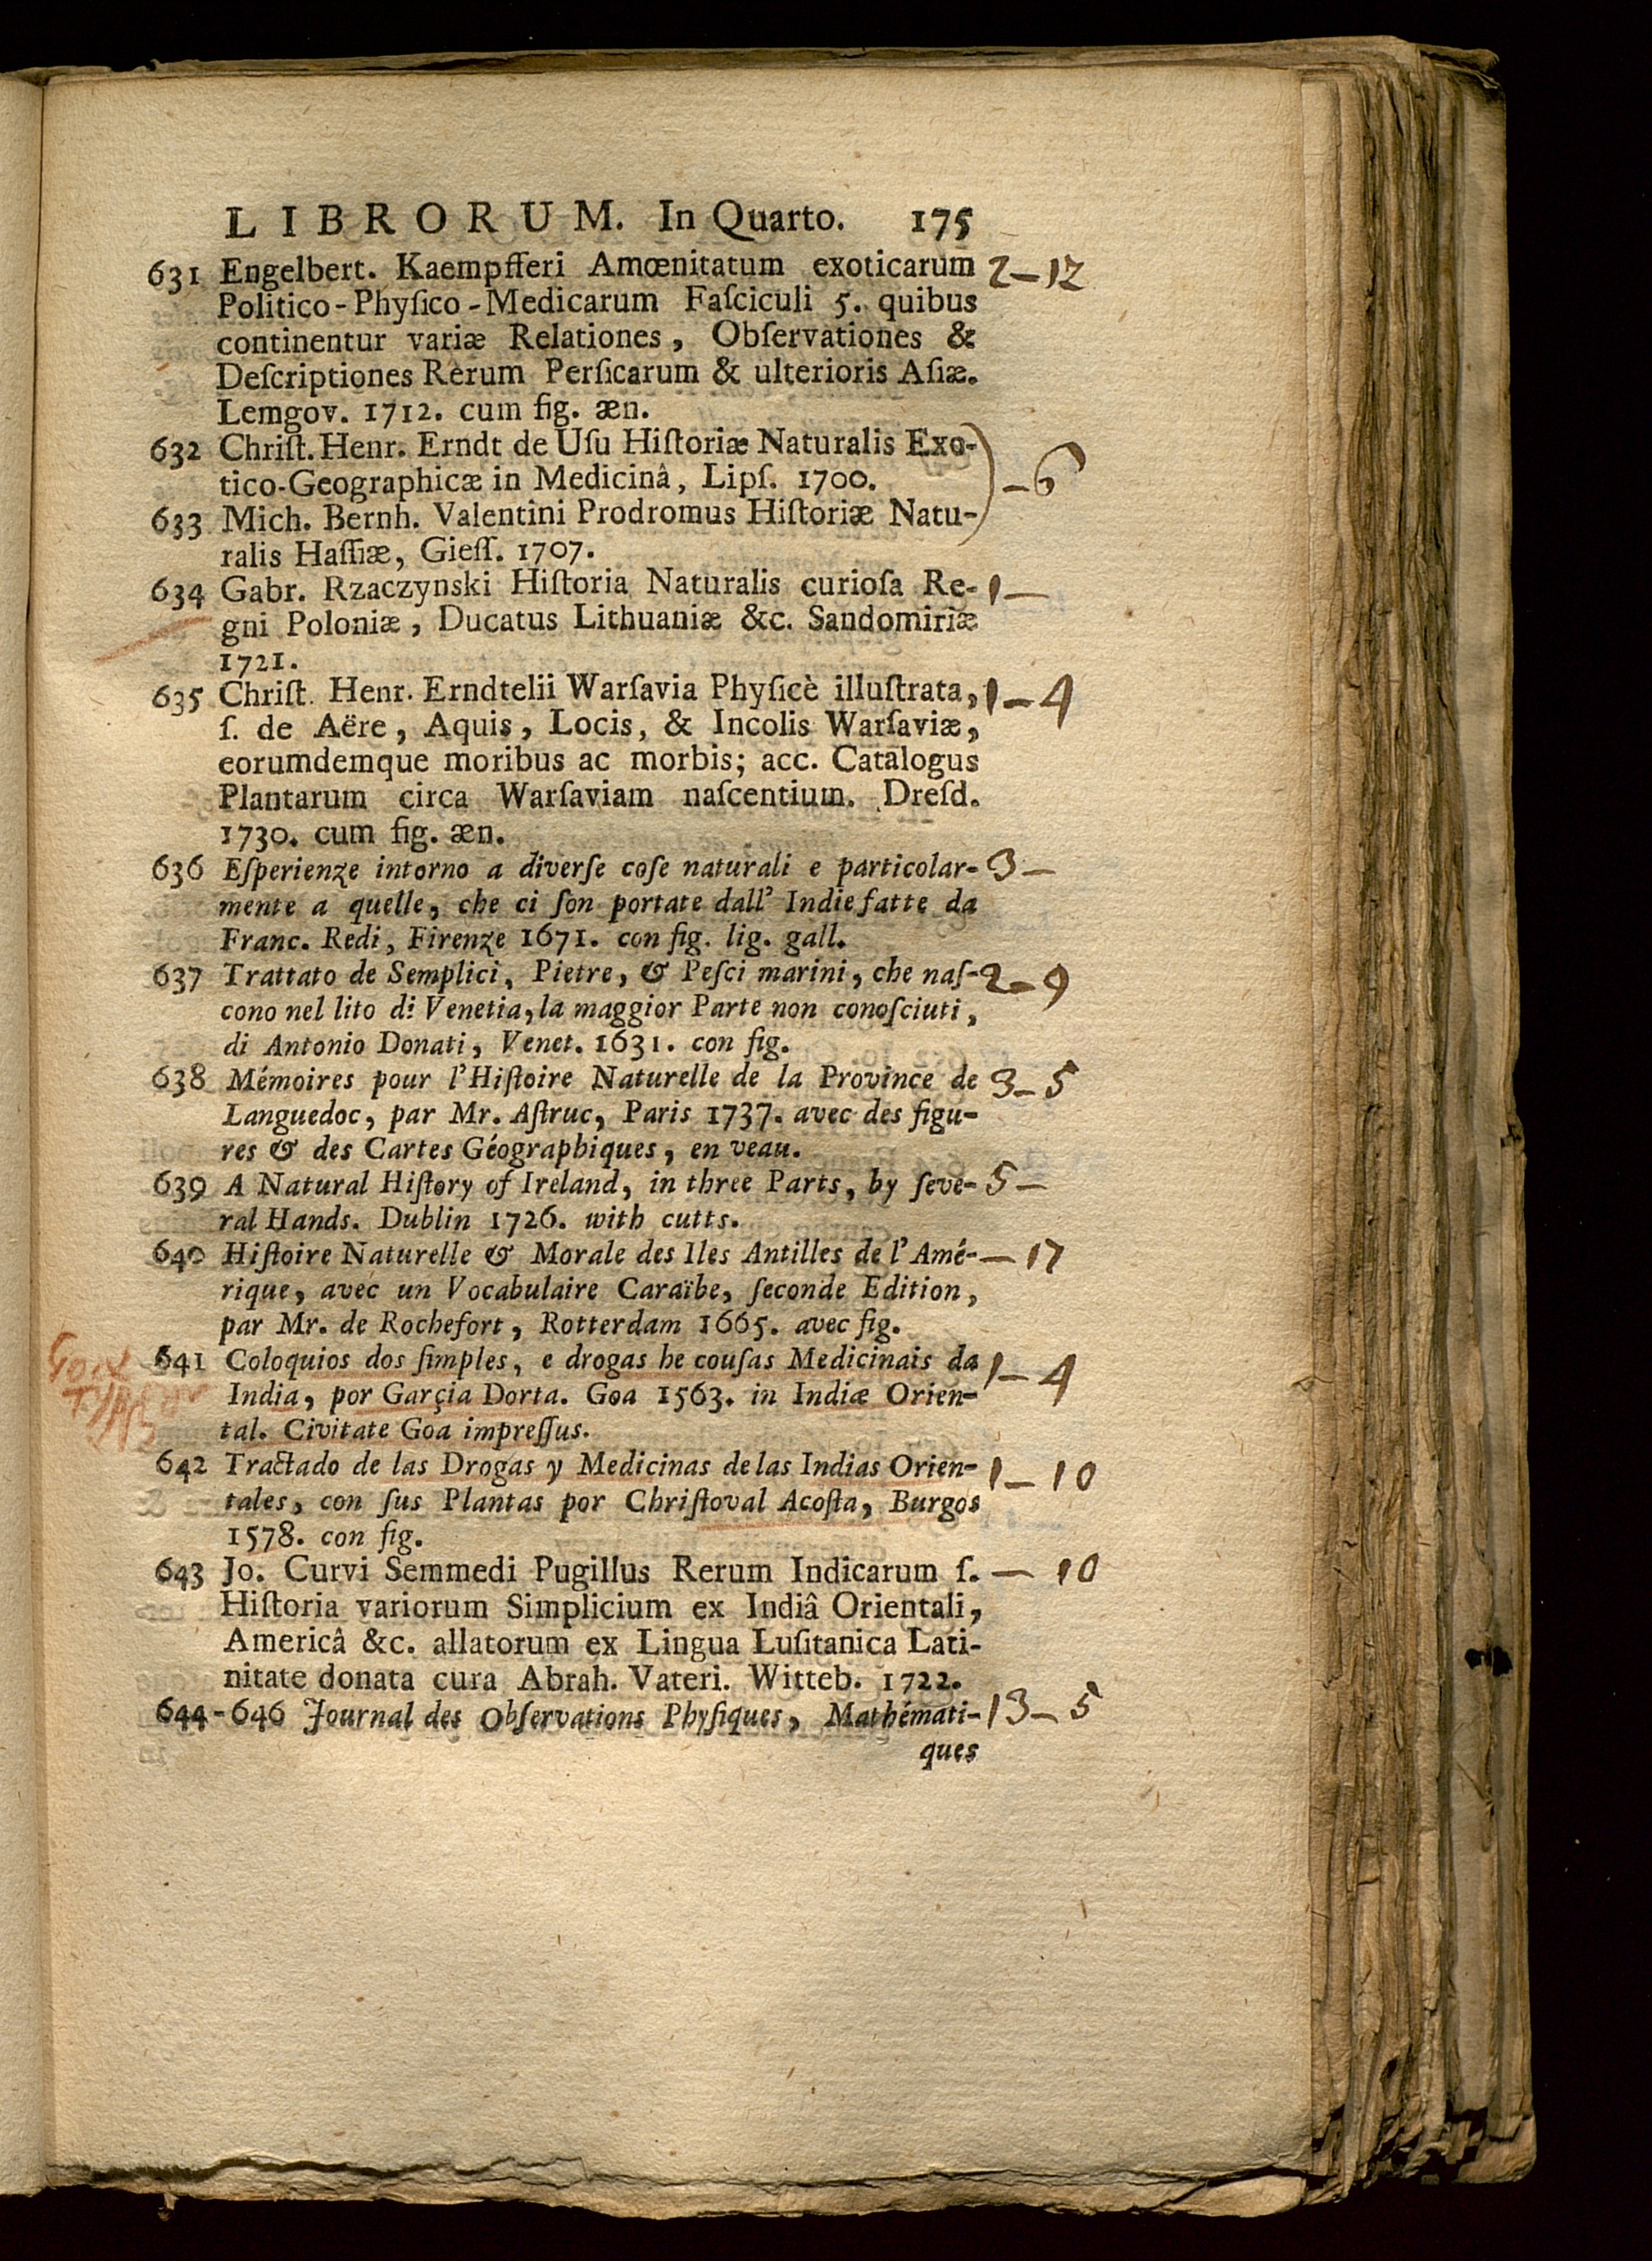 LIBRORUM. In Quarto. 175
631 Engelbert. Kaempfferi Amœnitatum exoticarum 2–12
Politico-Phyſico-Medicarum Faſciculi 5. quibus
continentur variæ Relationes, Obſervationes &
Deſcriptiones Rerum Perſicarum & ulterioris Aſiæ.
Lemgov. 1712. cum fig. æn.
632 Chriſt. Henr. Erndt de Uſu Hiſtoriæ Naturalis Exo-
tico-Geographicæ in Medicinâ, Lipſ. 1700. –6
633 Mich. Bernh. Valentini Prodromus Hiſtoriæ Natu-
ralis Haſſiæ, Gieſſ. 1707.
634 Gabr. Rzaczynski Hiſtoria Naturalis curioſa Re- 1–
gni Poloniæ, Ducatus Lithuaniæ &c. Sandomiriæ
1721.
635 Chriſt. Henr. Erndtelii Warſavia Phyſicè illuſtrata, 1–4
ſ. de Aëre, Aquis, Locis, & Incolis Warſaviæ,
eorumdemque moribus ac morbis; acc. Catalogus
Plantarum circa Warſaviam naſcentium. Dreſd.
1730. cum fig. æn.
636 Eſperienze intorno a diverſe coſe naturali e particolar- 3–
mente a quelle, che ci ſon portate dall' Indie fatte da
Franc. Redi, Firenze 1671. con fig. lig. gall.
637 Trattato de Semplici, Pietre, & Peſci marini, che naſ- 2–9
cono nel lito di Venetia, la maggior Parte non conoſciuti,
di Antonio Donati, Venet. 1631. con fig.
638 Mémoires pour l'Hiſtoire Naturelle de la Province de 3–5
Languedoc, par Mr. Aſtruc, Paris 1737. avec des figu-
res & des Cartes Géographiques, en veau.
639 A Natural Hiſtory of Ireland, in three Parts, by ſeve- 5–
ral Hands. Dublin 1726. with cutts.
640 Hiſtoire Naturelle & Morale des Iles Antilles de l'Amé- –17
rique, avec un Vocabulaire Caraïbe, ſeconde Edition,
par Mr. de Rochefort, Rotterdam 1665. avec fig.
641 Coloquios dos ſimples, e drogas he couſas Medicinais da 1–4
India, por Garçia Dorta. Goa 1563. in Indiæ Orien-
tal. Civitate Goa impreſſus.
642 Tractado de las Drogas y Medicinas de las Indias Orien- 1–10
tales, con ſus Plantas por Chriſtoval Acoſta, Burgos
1578. con fig.
643 Jo. Curvi Semmedi Pugillus Rerum Indicarum ſ. –10
Hiſtoria variorum Simplicium ex Indiâ Orientali,
Americâ &c. allatorum ex Lingua Luſitanica Lati-
nitate donata cura Abrah. Vateri. Witteb. 1722.
644-646 Journal des Obſervations Phyſiques, Mathémati- 13–5
ques